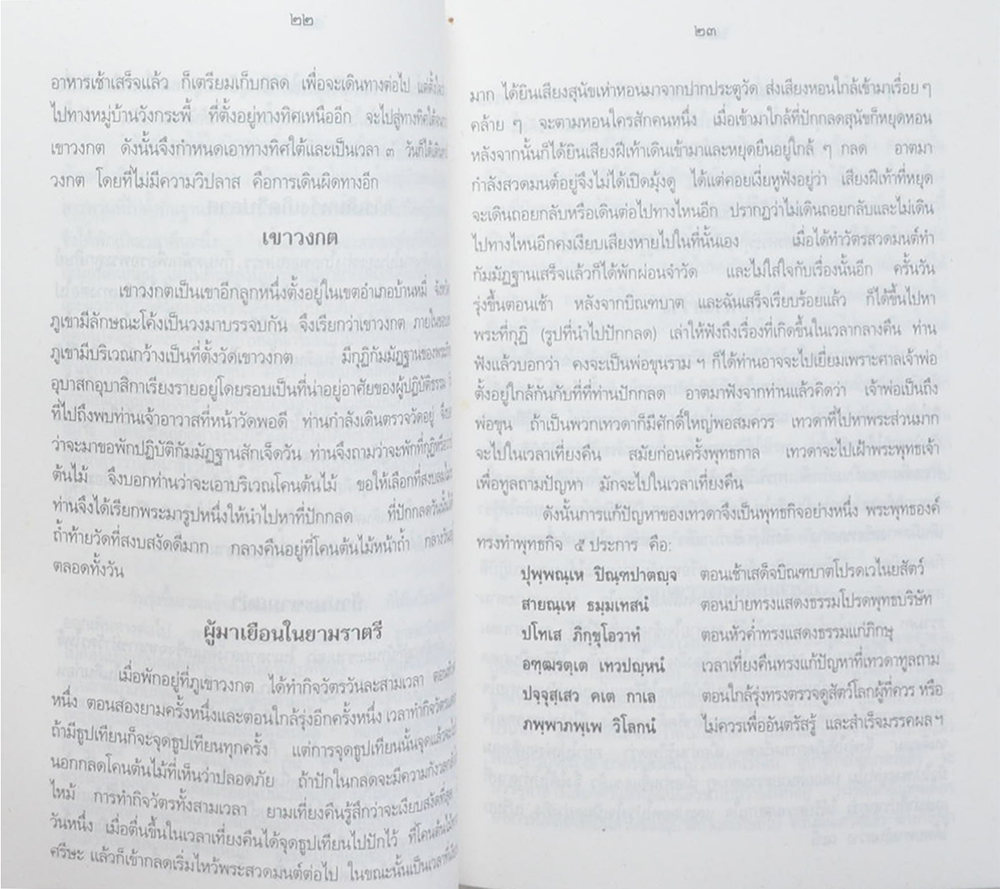 ๒๒
อาหารเช้าเสร็จแล้ว ก็เตรียมเก็บกลด เพื่อจะเดินทางต่อไป แต่ตั้งใจ
ไปทางหมู่บ้านวังกระพี้ ที่ตั้งอยู่ทางทิศเหนืออีก จะไปสู่ทางทิศใต้
เขาวงกต ดังนั้นจึงกำหนดเอาทางทิศใต้และเป็นเวลา ๓ วันก็ได้เดิน
วงกต โดยที่ไม่มีความวิปลาส คือการเดินผิดทางอีก
เขาวงกต
เขาวงกตเป็นเขาอีกลูกหนึ่งตั้งอยู่ในเขตอำเภอบ้านหมี่
ภูเขามีลักษณะโค้งเป็นวงมาบรรจบกัน จึงเรียกว่าเขาวงกต ภายใน
ภูเขามีบริเวณกว้างเป็นที่ตั้งวัดเขาวงกต มีกุฏิกัมมัฏฐานของ
อุบาสกอุบาสิกาเรียงรายอยู่โดยรอบเป็นที่น่าอยู่อาศัยของผู้ปฏิบัติธรรม
ที่ไปถึงพบท่านเจ้าอาวาสที่หน้าวัดพอดี ท่านกำลังเดินตรวจวัดอยู่
ว่าจะมาขอพักปฏิบัติกัมมัฏฐานสักเจ็ดวัน ท่านจึงถามว่าจะพักที่กุฏิหรือ
ต้นไม้ จึงบอกท่านว่าจะเอาบริเวณโคนต้นไม้ ขอให้เลือกที่สงบ
ท่านจึงได้เรียกพระมารูปหนึ่งให้นำไปหาที่ปักกลด ที่ปักกลดวันนั้น
ถ้ำท้ายวัดที่สงบสงัดดีมาก กลางคืนอยู่ที่โคนต้นไม้หน้าถ้ำ กลางวัน
ตลอดทั้งวัน
ผู้มาเยือนในยามราตรี
เมื่อพักอยู่ที่ภูเขาวงกต ได้ทำกิจวัตรวันละสามเวลา
หนึ่ง ตอนสองยามครั้งหนึ่งและตอนใกล้รุ่งอีกครั้งหนึ่ง เวลาทำกิจวัตร
ถ้ามีธูปเทียนก็จะจุดธูปเทียนทุกครั้ง แต่การจุดธูปเทียนนั้นจุดแล้วจะ
นอกกลดโคนต้นไม้ที่เห็นว่าปลอดภัย ถ้าปักในกลดจะมีความกังวล
ไหม้ การทำกิจวัตรทั้งสามเวลา ยามเที่ยงคืนรู้สึกว่าจะเงียบสงัดที่สุด
วันหนึ่ง เมื่อตื่นขึ้นในเวลาเที่ยงคืนได้จุดธูปเทียนไปปักไว้ ที่โคนต้นไม้
ศรีษะ แล้วก็เข้ากลดเริ่มไหว้พระสวดมนต์ต่อไป ในขณะนั้นเป็นเวลาที่
๒๓
มาก ได้ยินเสียงสุนัขเห่าหอนมาจากปากประตูวัด ส่งเสียงหอนใกล้เข้ามาเรื่อย ๆ
คล้าย ๆ จะตามหอนใครสักคนหนึ่ง เมื่อเข้ามาใกล้ที่ปักกลดสุนัขก็หยุดหอน
หลังจากนั้นก็ได้ยินเสียงฝีเท้าเดินเข้ามาและหยุดยืนอยู่ใกล้ ๆ กลด อาตมา
กำลังสวดมนต์อยู่จึงไม่ได้เปิดมุ้งดู ได้แต่คอยเงี่ยหูฟังอยู่ว่า เสียงฝีเท้าที่หยุด
จะเดินถอยกลับหรือเดินต่อไปทางไหนอีก ปรากฏว่าไม่เดินถอยกลับและไม่เดิน
ไปทางไหนอีกคงเงียบเสียงหายไปในที่นั้นเอง เมื่อได้ทำวัตรสวดมนต์ทำ
กัมมัฏฐานเสร็จแล้วก็ได้พักผ่อนจำวัด และไม่ใส่ใจกับเรื่องนั้นอีก ครั้นวัน
รุ่งขึ้นตอนเช้า หลังจากบิณฑบาต และฉันเสร็จเรียบร้อยแล้ว ก็ได้ขึ้นไปหา
พระที่กุฏิ (รูปที่นำไปปักกลด) เล่าให้ฟังถึงเรื่องที่เกิดขึ้นในเวลากลางคืน ท่าน
ฟังแล้วบอกว่า คงจะเป็นพ่อขุนราม ฯ ก็ได้ท่านอาจจะไปเยี่ยมเพราะศาลเจ้าพ่อ
ตั้งอยู่ใกล้กันกับที่ที่ท่านปักกลด อาตมาฟังจากท่านแล้วคิดว่า เจ้าพ่อเป็นถึง
พ่อขุน ถ้าเป็นพวกเทวดาก็มีศักดิ์ใหญ่พอสมควร เทวดาที่ไปหาพระส่วนมาก
จะไปในเวลาเที่ยงคืน สมัยก่อนครั้งพุทธกาล เทวดาจะไปเฝ้าพระพุทธเจ้า
เพื่อทูลถามปัญหา มักจะไปในเวลาเที่ยงคืน
ดังนั้นการแก้ปัญหาของเทวดาจึงเป็นพุทธกิจอย่างหนึ่ง พระพุทธองค์
ทรงทำพุทธกิจ ๕ ประการ คือ:
ปุพฺพณฺเห ปิณฺฑปาตญฺจ ตอนเช้าเสด็จบิณฑบาตโปรดเวไนยสัตว์
สายณฺเห ธมฺมเทสนํ ตอนบ่ายทรงแสดงธรรมโปรดพุทธบริษัท
ปโทเส ภิกฺขุโอวาทํ ตอนหัวค่ำทรงแสดงธรรมแก่ภิกษุ
อฑฺฒรตฺเต เทวปญฺหนํ เวลาเที่ยงคืนทรงแก้ปัญหาที่เทวดาทูลถาม
ปจฺจุสฺเสว คเต กาเล ตอนใกล้รุ่งทรงตรวจดูสัตว์โลกผู้ที่ควร หรือ
ภพฺพาภพฺเพ วิโลกนํ ไม่ควรเพื่ออันตรัสรู้ และสำเร็จมรรคผล ฯ